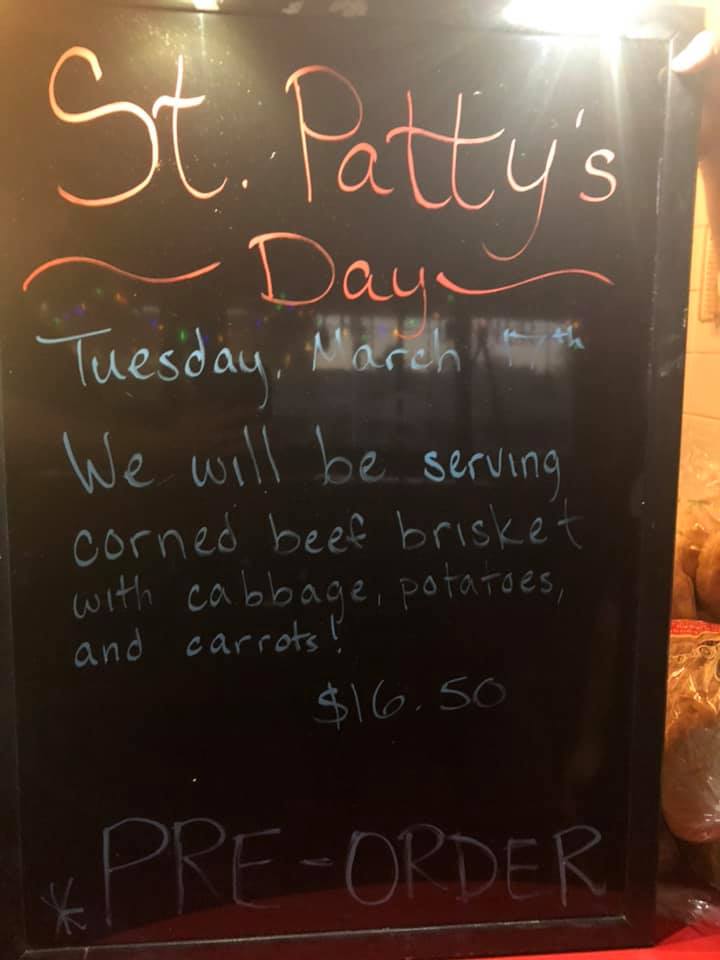 St. Patty's
Day
Tuesday, March 17th
We will be serving
corned beef brisket
with cabbage, potatoes,
and carrots!
$16.50
* PRE-ORDER